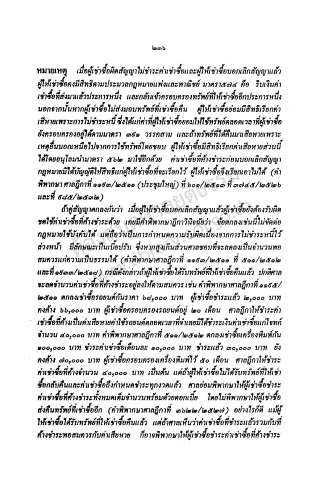 ๒๓๖
หมายเหตุ เมื่อผู้เช่าซื้อผิดสัญญาไม่ชำระค่าเช่าซื้อและผู้ให้เช่าซื้อบอกเลิกสัญญาแล้ว
ผู้ให้เช่าซื้อคงมีสิทธิตามประมวลกฎหมายแพ่งและพาณิชย์ มาตรา ๕๗๔ คือ ริบเงินค่า
เช่าซื้อที่ส่งมาแล้วประการหนึ่ง และกลับเข้าครอบครองทรัพย์ที่ให้เช่าซื้ออีกประการหนึ่ง
นอกจากนั้นหากผู้เช่าซื้อไม่ส่งมอบทรัพย์ที่เช่าซื้อคืน ผู้ให้เช่าซื้อย่อมมีสิทธิเรียกค่า
เสียหายเพราะการไม่ชำระหนี้ ซึ่งได้แก่ค่าที่ผู้ให้เช่าซื้อยอมให้ใช้ทรัพย์ตลอดเวลาที่ผู้เช่าซื้อ
ยังครอบครองอยู่ได้ตามมาตรา ๓๙๑ วรรคสาม และถ้าทรัพย์ที่ได้คืนมาเสียหายเพราะ
เหตุอื่นนอกเหนือไปจากการใช้ทรัพย์โดยชอบ ผู้ให้เช่าซื้อก็มีสิทธิเรียกค่าเสียหายส่วนนี้
ได้โดยอนุโลมนำมาตรา ๕๖๒ มาใช้อีกด้วย ค่าเช่าซื้อที่ค้างชำระก่อนบอกเลิกสัญญา
กฎหมายมิได้บัญญัติให้สิทธิแก่ผู้ให้เช่าซื้อที่จะเรียกไว้ ผู้ให้เช่าซื้อจึงเรียกเอาไม่ได้ (คำ
พิพากษาฎีกาที่ ๑๑๙๓/๒๕๑๑ (ประชุมใหญ่) ที่
และที่
ถ้าคู่สัญญาตกลงกันว่า เมื่อผู้ให้เช่าซื้อบอกเลิกสัญญาแล้วผู้เช่าซื้อยังต้องรับผิด
ชดใช้ค่าเช่าซื้อที่ค้างชำระด้วย เคยมีคำพิพากษาฎีกาวินิจฉัยว่า ข้อตกลงเช่นนี้ไม่ขัดต่อ
กฎหมายใช้บังคับได้ แต่ถือว่าเป็นการกำหนดความรับผิดเนื่องจากการไม่ชำระหนี้ไว้
ล่วงหน้า มีลักษณะเป็นเบี้ยปรับ ซึ่งหากสูงเกินส่วนศาลชอบที่จะลดลงเป็นจำนวนพอ
สมควรแก่ความเป็นธรรมได้ (คำพิพากษาฎีกาที่
และที่ กรณีดังกล่าวถ้าผู้ให้เช่าซื้อได้รับทรัพย์ที่ให้เช่าซื้อคืนแล้ว ปกติศาล
จะลดจำนวนค่าเช่าซื้อที่ค้างชำระอยู่ลงให้ตามสมควร เช่น คำพิพากษาฎีกาที่ ๑๑๙๕/
๒๕๑๑ ตกลงเช่าซื้อรถยนต์กันราคา ๖๘,๐๐๐ บาท ผู้เช่าซื้อชำระแล้ว ๒,๐๐๐ บาท
คงค้าง ๖๖,๐๐๐ บาท ผู้เช่าซื้อครอบครองรถยนต์อยู่ ๒๐ เดือน ศาลฎีกาให้ชำระค่า
เช่าซื้อที่ค้างเป็นค่าเสียหายค่าใช้รถยนต์ตลอดเวลาที่จำเลยมิได้ชำระเงินค่าเช่าซื้อแก่โจทก์
จำนวน ๔๐,๐๐๐ บาท คำพิพากษาฎีกาที่ ตกลงเช่าซื้อเครื่องพิมพ์กัน
๑๐๐,๐๐๐ บาท ชำระค่าเช่าซื้อเดือนละ ๑๐,๐๐๐ บาท ชำระแล้ว ๓๐,๐๐๐ บาท ยัง
คงค้าง ๗๐,๐๐๐ บาท ผู้เช่าซื้อครอบครองเครื่องพิมพ์ไว้ ๕๐ เดือน ศาลฎีกาให้ชำระ
ค่าเช่าซื้อที่ค้างจำนวน ๔๐,๐๐๐ บาท เป็นต้น แต่ถ้าผู้ให้เช่าซื้อไม่ได้รับทรัพย์ที่ให้เช่า
ซื้อกลับคืนและค่าเช่าซื้อถึงกำหนดชำระทุกงวดแล้ว ศาลย่อมพิพากษาให้ผู้เช่าซื้อชำระ
ค่าเช่าซื้อที่ค้างชำระทั้งหมดเต็มจำนวนพร้อมด้วยดอกเบี้ย โดยไม่พิพากษาให้ผู้เช่าซื้อ
ส่งคืนทรัพย์ที่เช่าซื้ออีก (คำพิพากษาฎีกาที่ ๓๖๒๒/๒๕๒๗) อย่างไรก็ดี แม้ผู้
ให้เช่าซื้อได้รับทรัพย์ที่ให้เช่าซื้อคืนแล้ว แต่ถ้าศาลเห็นว่าค่าเช่าซื้อที่ชำระแล้วรวมกับที่
ค้างชำระพอสมควรกับค่าเสียหาย ก็อาจพิพากษาให้ผู้เช่าซื้อชำระค่าเช่าซื้อที่ค้างชำระ